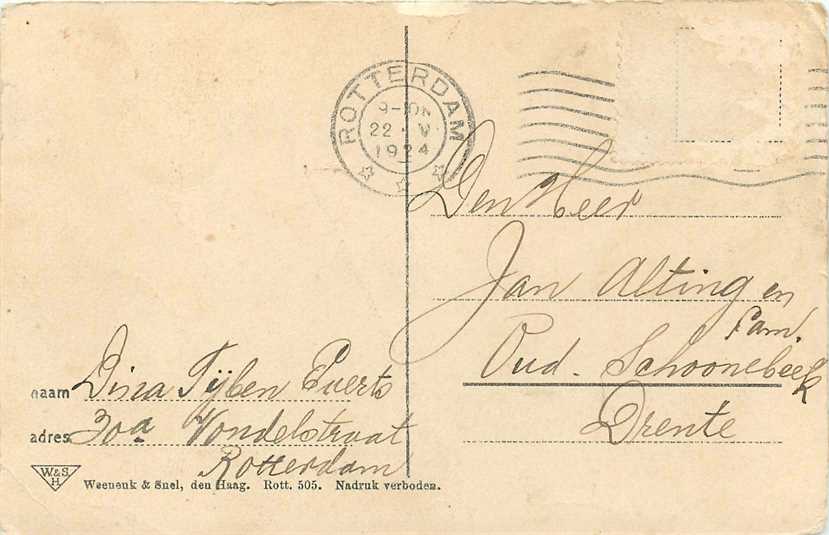 ROTTERDAM
9-10N
22 · V
1924
Den Heer
Jan Alting en
Fam.
Oud-Schoonebeek
Drente
naam Dina Tijben Everts
adres 30a Vondelstraat
Rotterdam
W&S
H
Weenenk & Snel, den Haag. Rott. 505. Nadruk verboden.